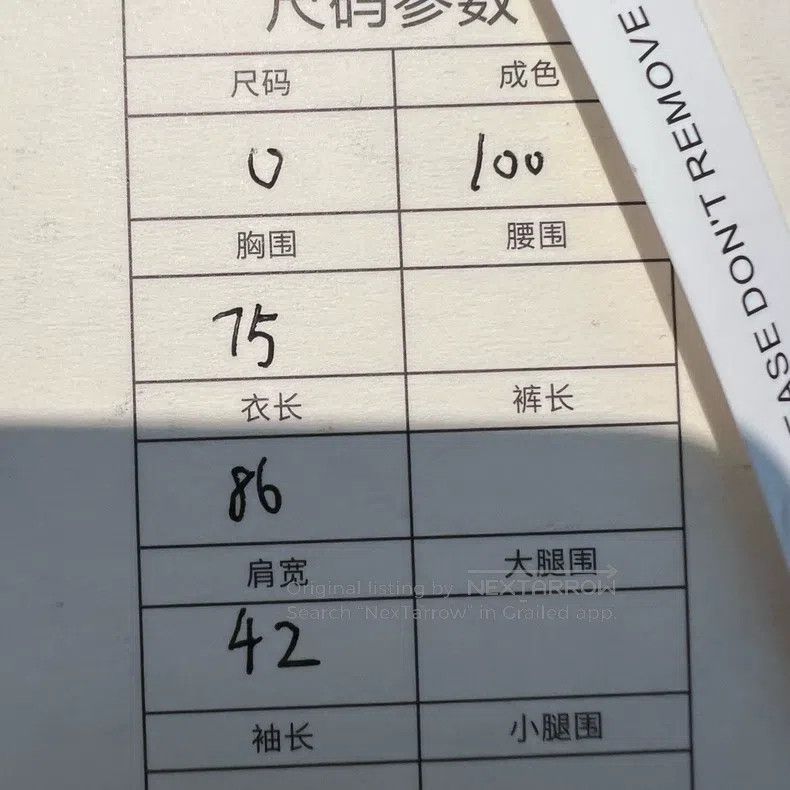 尺码参数
尺码 成色
0 100
胸围 腰围
75
衣长 裤长
86
肩宽 大腿围
Original listing by NEXTARROW
Search "NexTarrow" in Grailed app.
42
袖长 小腿围
EASE DON'T REMOVE